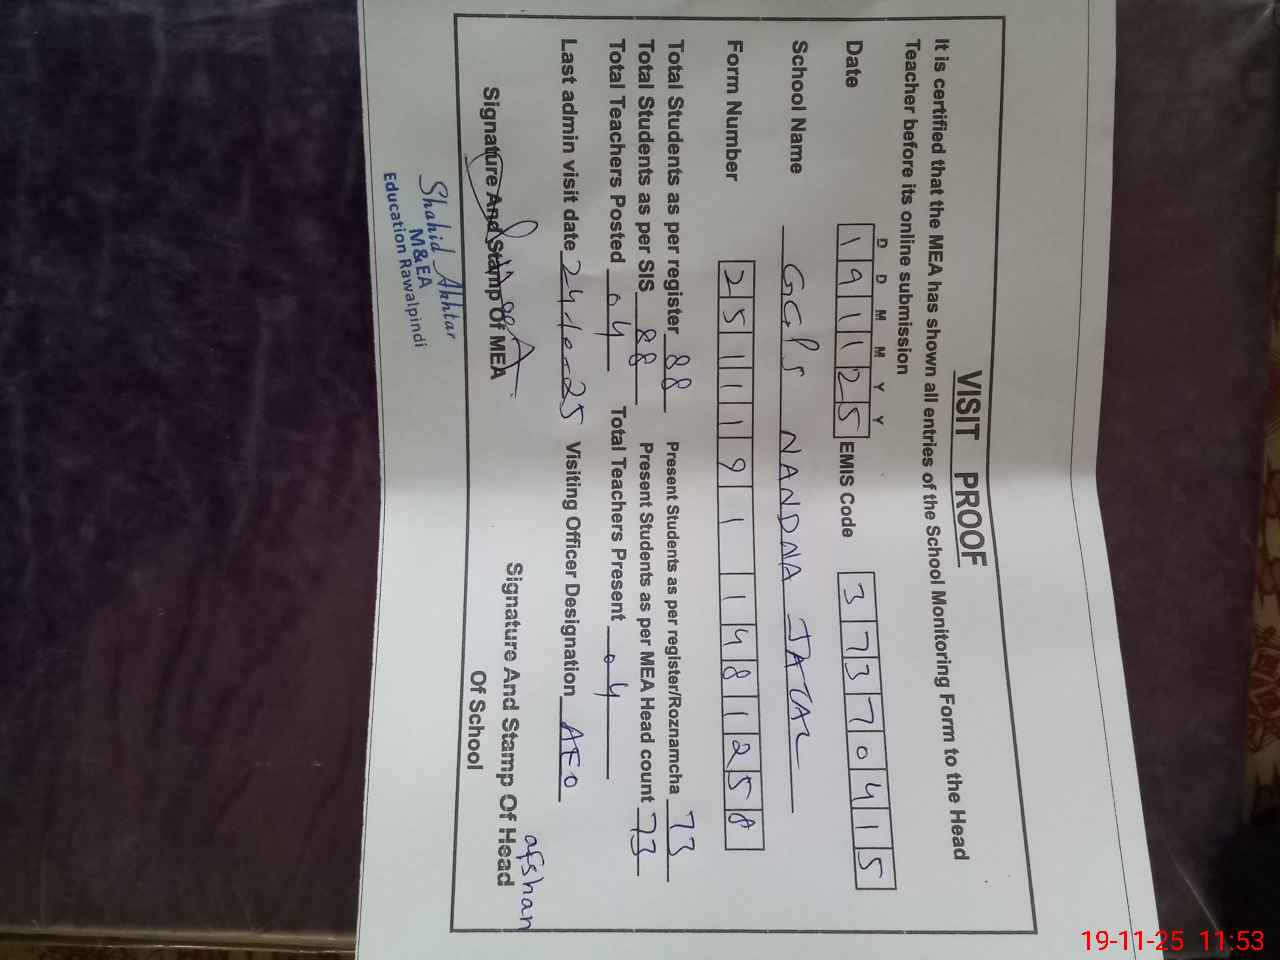 VISIT PROOF
It is certified that the MEA has shown all entries of the School Monitoring Form to the Head
Teacher before its online submission
D D M M Y Y
Date 191125 EMIS Code 37370415
School Name GGPS NANDNA JATAL
Form Number 25111911481258
Total Students as per register 88 Present Students as per register/Roznamcha 73
Total Students as per SIS 88 Present Students as per MEA Head count 73
Total Teachers Posted 04 Total Teachers Present 04
Last admin visit date 24-10-25 Visiting Officer Designation AEO
afshan
Signature And Stamp Of MEA Signature And Stamp Of Head
Of School
Shahid Akhtar
M&EA
Education Rawalpindi
19-11-25 11:53